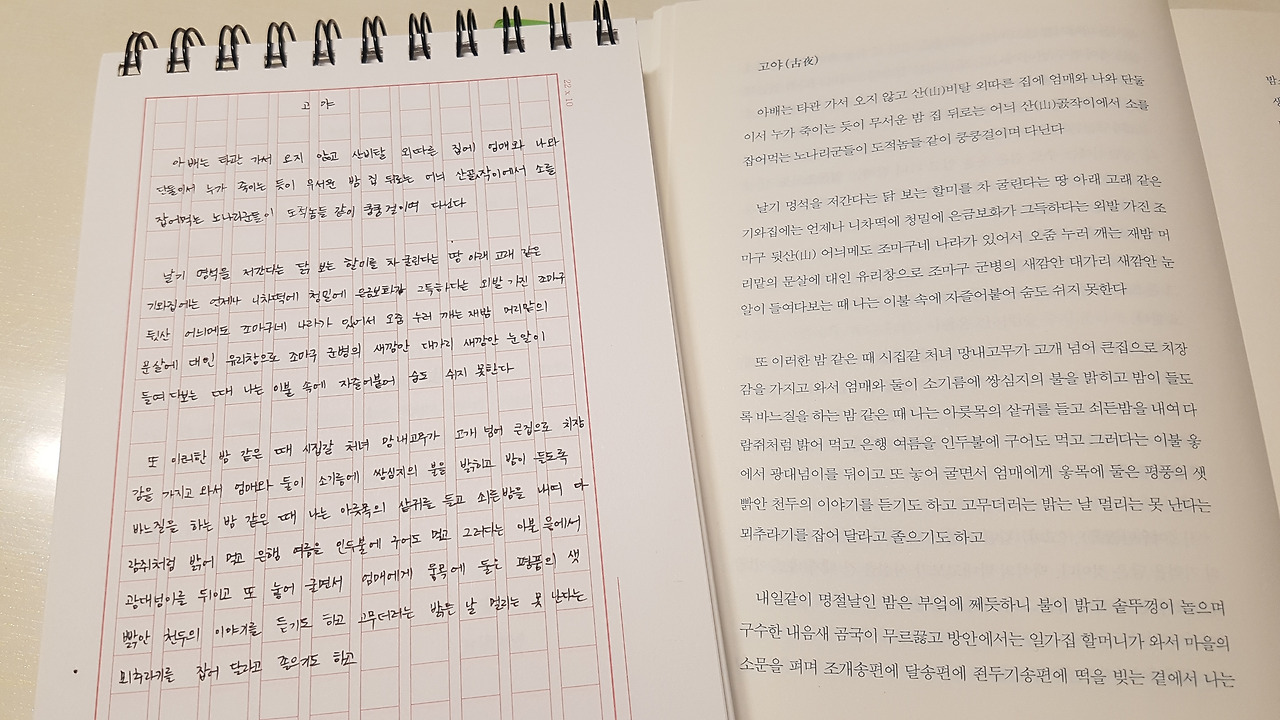 22 x 10
고야
아배는 타관 가서 오지 않고 산비탈 외따른 집에 엄매와 나와
단둘이서 누가 죽이는 듯이 무서운 밤 집 뒤로는 어늬 산골짝이에서 소를
잡어먹는 노나리군들이 도적놈들 같이 쿵쿵걸이며 다닌다
날기 멍석을 저간다는 닭 보는 할미를 차 굴린다는 땅 아래 고래 같은
기와집에는 언제나 니차떡에 청밀에 은금보화가 그득하다는 외발 가진 조마구
뒷산 어늬메도 조마구네 나라가 있어서 오줌 누러 깨는 재밤 머리맡의
문살에 대인 유리창으로 조마구 군병의 새깜안 대가리 새깜안 눈알이
들여다보는 때 나는 이불 속에 자즐어붙어 숨도 쉬지 못한다
또 이러한 밤 같은 때 시집갈 처녀 망내고무가 고개 넘어 큰집으로 치장
감을 가지고 와서 엄매와 둘이 소기름에 쌍심지의 불을 밝히고 밤이 들도록
바느질을 하는 밤 같은 때 나는 아릇목의 샅귀를 들고 쇠든밤을 내여 다
람쥐처럼 밝어 먹고 은행 여름을 인두불에 구어도 먹고 그러다는 이불 웋에서
광대넘이를 뒤이고 또 눟어 굴면서 엄매에게 웋목에 둘은 평풍의 샛
빩안 천두의 이야기를 듣기도 하고 고무더러는 밝는 날 멀리는 못 난다는
뫼추라기를 잡어 달라고 졸으기도 하고
고야(古夜)
아배는 타관 가서 오지 않고 산(山)비탈 외따른 집에 엄매와 나와 단둘
이서 누가 죽이는 듯이 무서운 밤 집 뒤로는 어늬 산(山)곬작이에서 소를
잡어먹는 노나리군들이 도적놈들 같이 쿵쿵걸이며 다닌다
날기 멍석을 저간다는 닭 보는 할미를 차 굴린다는 땅 아래 고래 같은
기와집에는 언제나 니차떡에 청밀에 은금보화가 그득하다는 외발 가진 조
마구 뒷산(山) 어늬메도 조마구네 나라가 있어서 오줌 누러 깨는 재밤 머
리맡의 문살에 대인 유리창으로 조마구 군병의 새깜안 대가리 새깜안 눈
알이 들여다보는 때 나는 이불 속에 자즐어붙어 숨도 쉬지 못한다
또 이러한 밤 같은 때 시집갈 처녀 망내고무가 고개 넘어 큰집으로 치장
감을 가지고 와서 엄매와 둘이 소기름에 쌍심지의 불을 밝히고 밤이 들도
록 바느질을 하는 밤 같은 때 나는 아릇목의 샅귀를 들고 쇠든밤을 내여 다
람쥐처럼 밝어 먹고 은행 여름을 인두불에 구어도 먹고 그러다는 이불 웋
에서 광대넘이를 뒤이고 또 눟어 굴면서 엄매에게 웋목에 둘은 평풍의 샛
빩안 천두의 이야기를 듣기도 하고 고무더러는 밝는 날 멀리는 못 난다는
뫼추라기를 잡어 달라고 졸으기도 하고
내일같이 명절날인 밤은 부엌에 째듯하니 불이 밝고 솥뚜껑이 놀으며
구수한 내음새 곰국이 무르끓고 방안에서는 일가집 할머니가 와서 마을의
소문을 펴며 조개송편에 달송편에 죈두기송편에 떡을 빚는 곁에서 나는